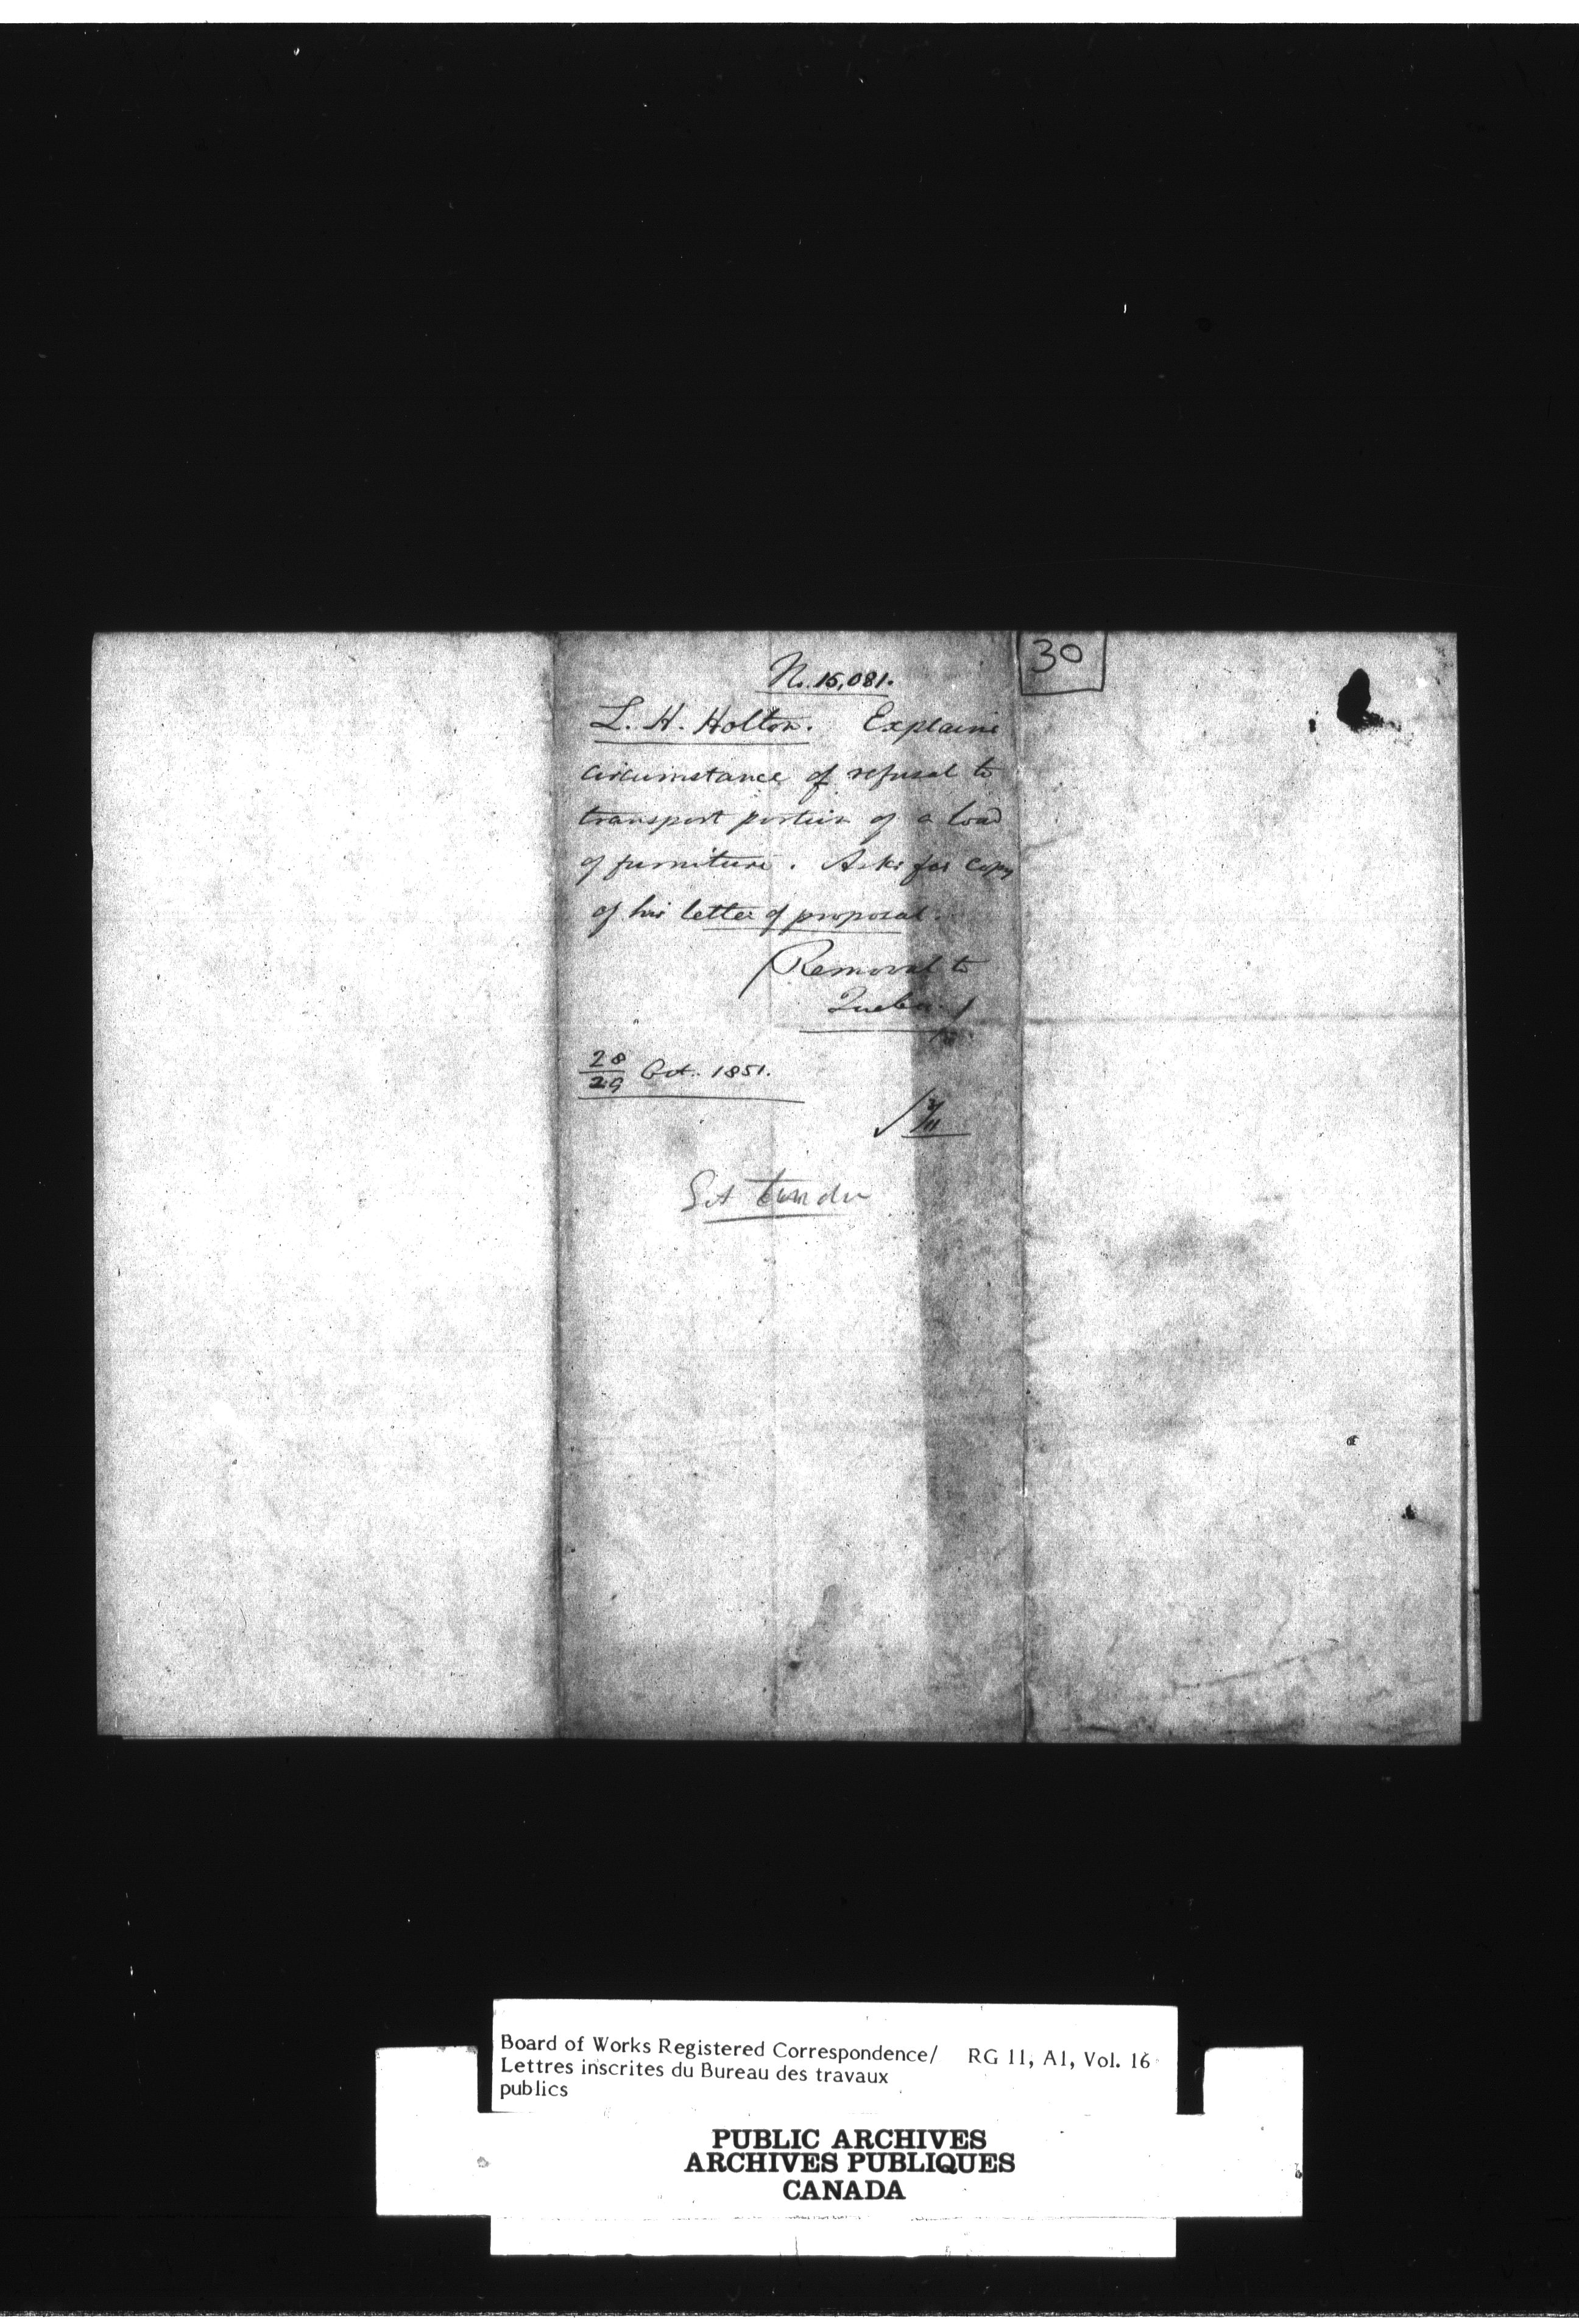 30
N. 15,081.
L. H. Holton. Explains
circumstance of refusal to
transport portion of a load
of furniture. Asks for copy
of his letter of proposal.
(Removal to
Quebec.)
28/29 Oct. 1851.
Board of Works Registered Correspondence/ RG 11, A1, Vol. 16
Lettres inscrites du Bureau des travaux
publics
PUBLIC ARCHIVES
ARCHIVES PUBLIQUES
CANADA